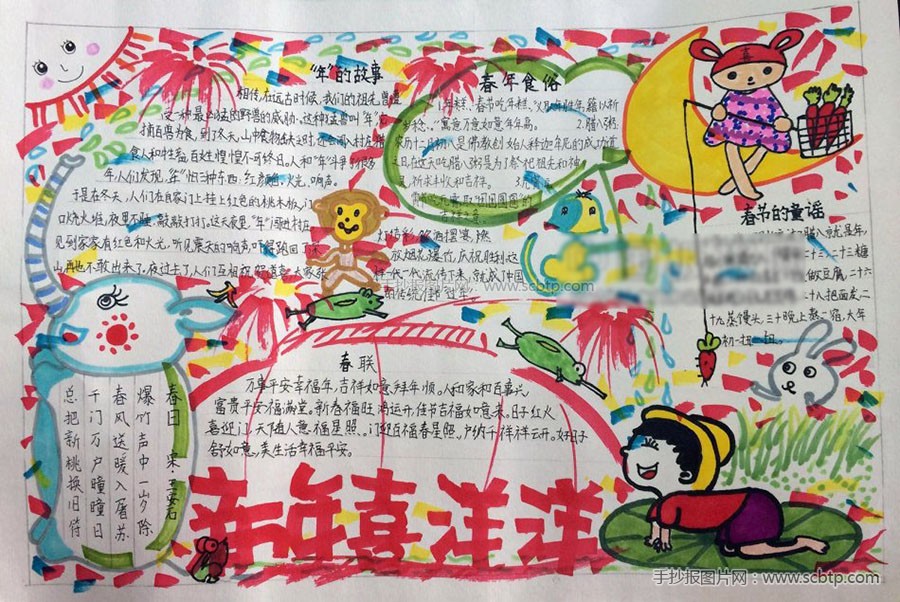 "年"的故事
相传,在远古时候,我们的祖先曾遭
受一种最凶猛的野兽的威胁。这种猛兽叫"年",它
捕百兽为食,到了冬天,山中食物缺乏时,还会闯入村庄猎
食人和牲畜,百姓惶惶不可终日。人和"年"斗争了很多
年,人们发现,"年"怕三种东西:红颜色、火光、响声。
于是在冬天,人们在自家门上挂上红色的桃木板,门
口烧火堆,夜里不睡,敲敲打打。这天夜里,"年"闯进村庄,
见到家家有红色和火光,听见震天的响声,吓得跑回了深
山,再也不敢出来了。夜过去了,人们互相祝贺道喜,大家张
灯结彩,饮酒摆宴,燃
放烟花爆竹,庆祝胜利
样一代一代流传下来,就成了中国
的传统佳节过年。
春年食俗
1、年糕。春节吃年糕,
步高。"寓意万事如意年年高。 2.腊八粥:
农历十二月初八是佛教创始人释迦牟尼的成功道
之日,在这天吃腊八粥是为了祭祀祖先和神
灵、祈求丰收和吉祥。 3.元宵
春节的童谣
二十三糖
做豆腐,二十六
二十八把面发,二
十九蒸馒头,三十晚上熬一宿,大年
初一扭一扭。
春联
万事平安幸福年,吉祥如意拜年顺。人和家和百事兴,
富贵平安福满堂。新春福旺鸿运开,佳节吉祥如意来。日子红火
喜迎门,天随人意福星照。门迎百福春星照,户纳千祥祥云开。好日子
舒如意,美生活幸福平安。
春日 宋·王安石
爆竹声中一岁除
春风送暖入屠苏
千门万户曈曈日
总把新桃换旧符
新年喜洋洋
手抄报图片网 www.scbtp.com
手抄报图片网:www.scbtp.com